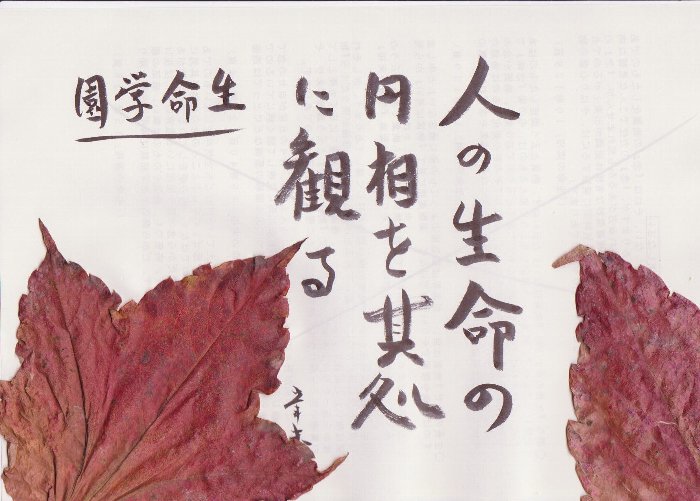 人の生命の
円相を其処
に観る
生命学園